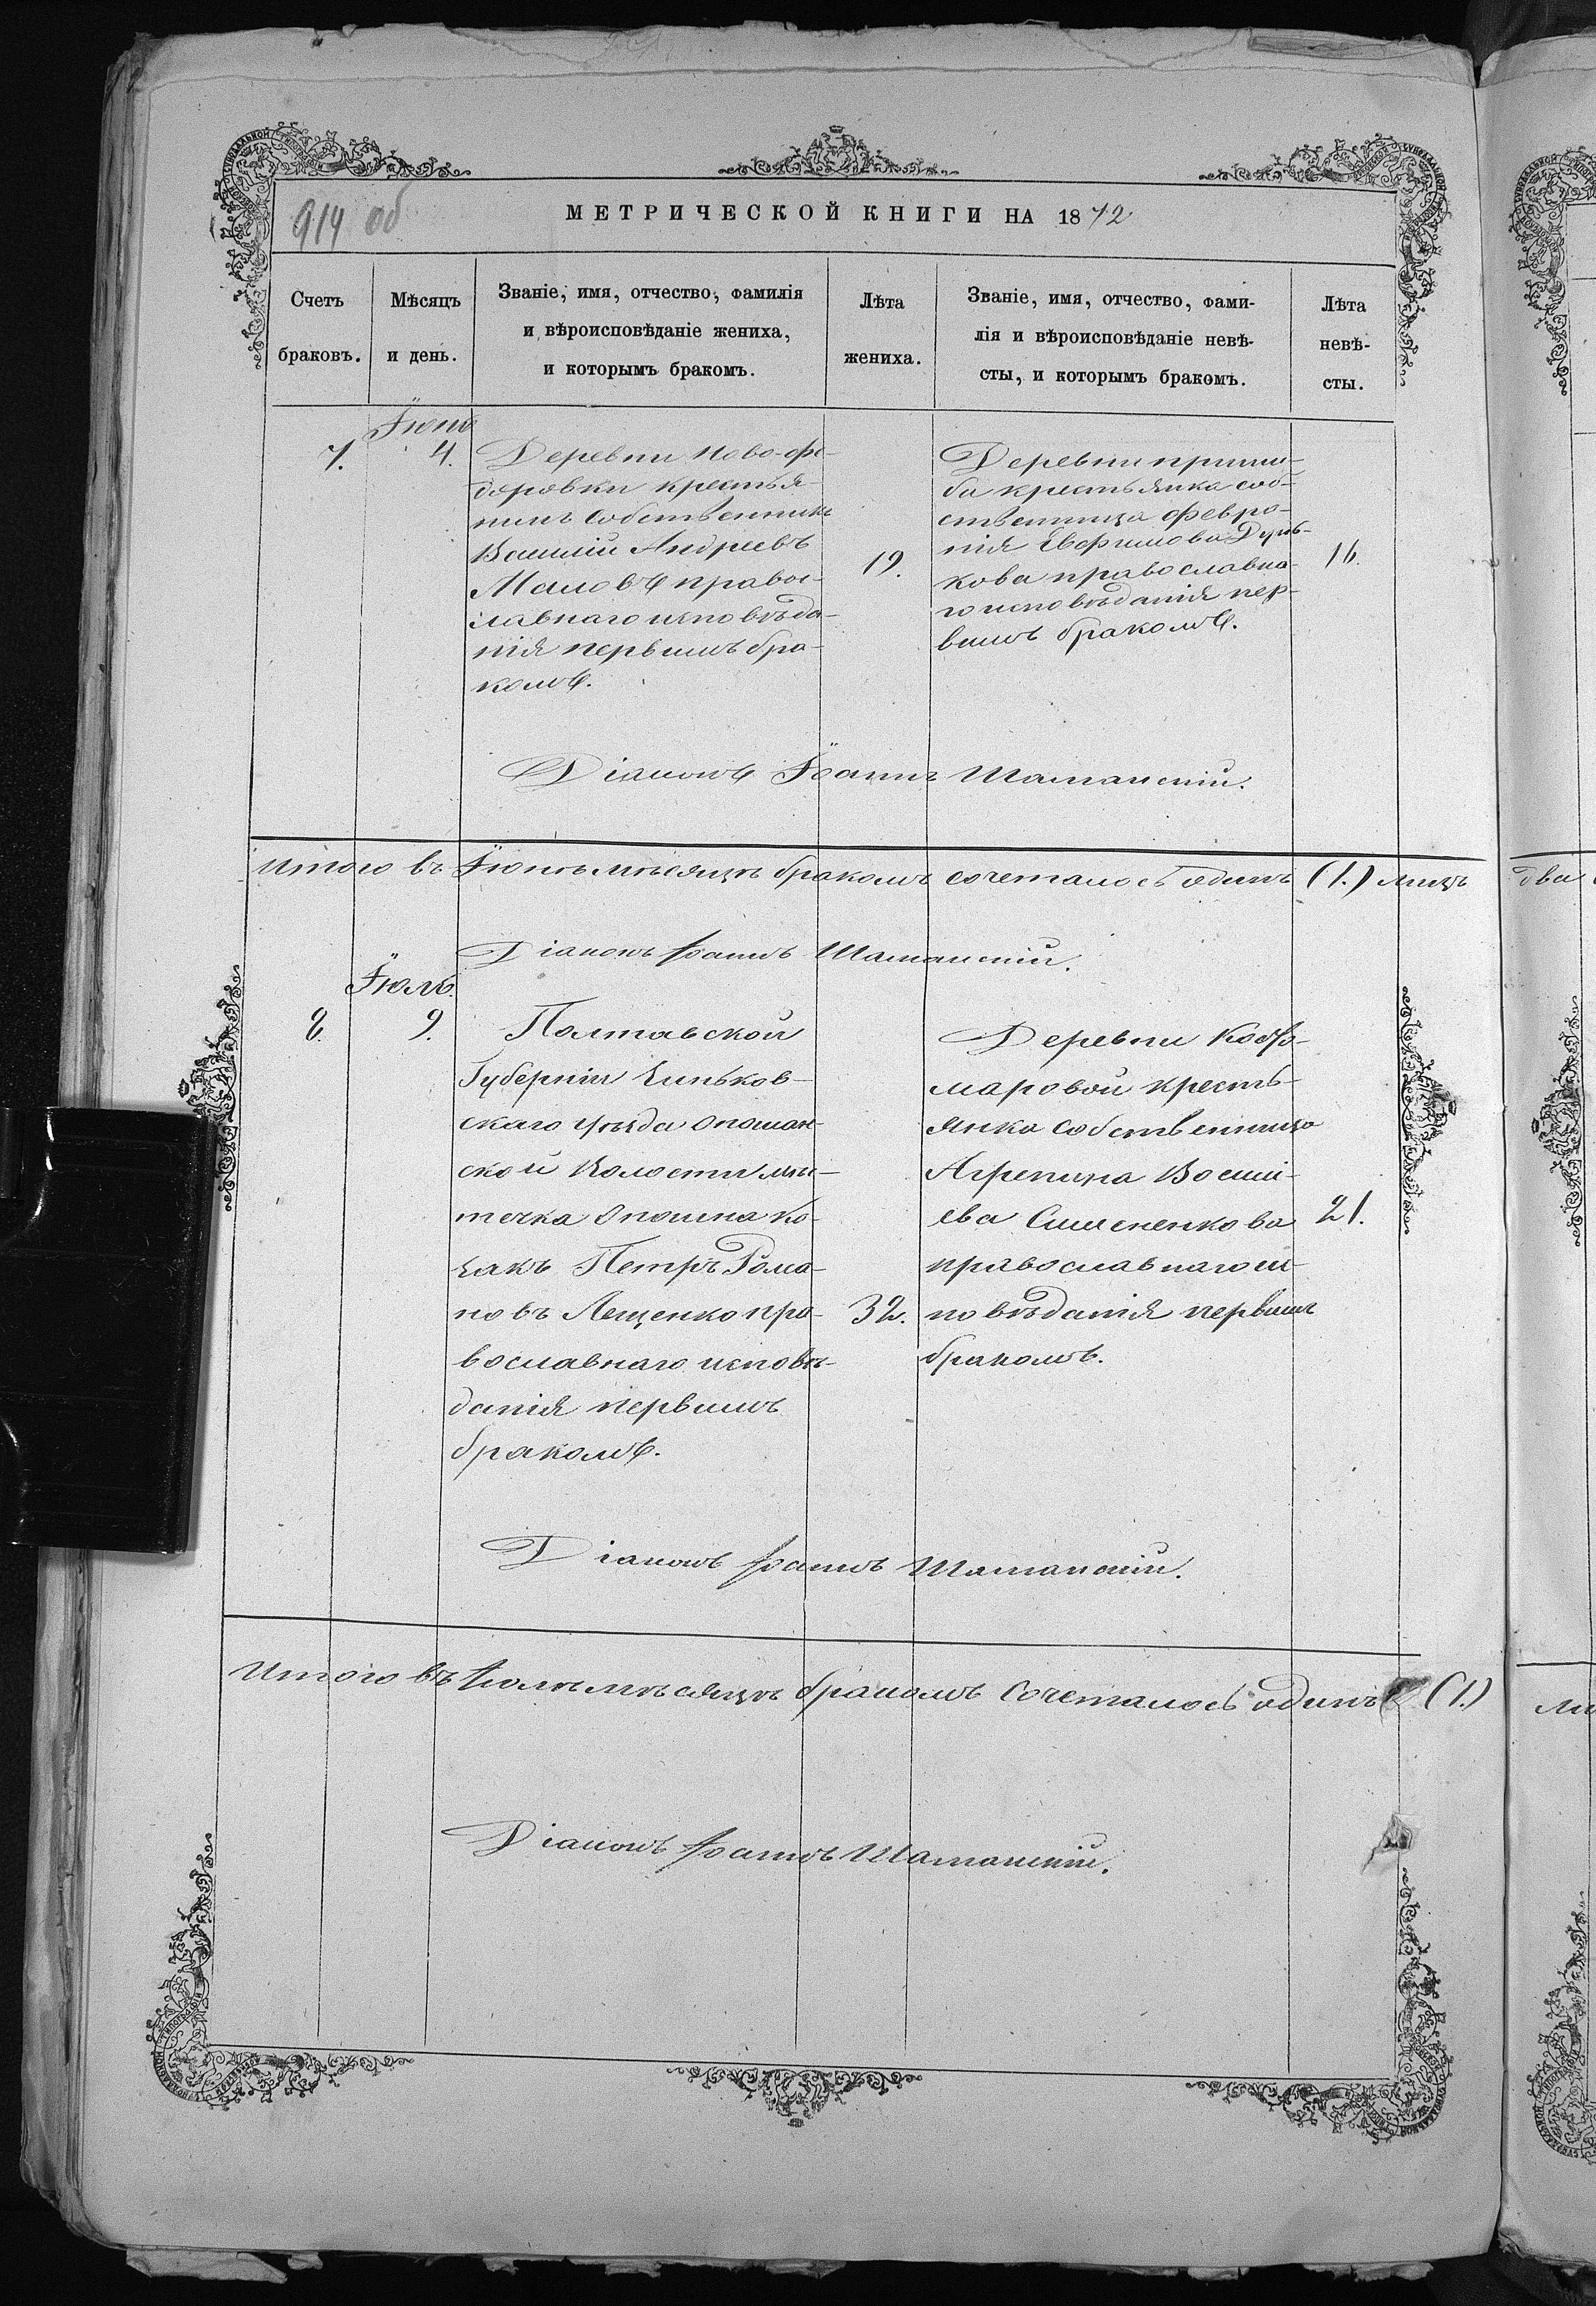 914 об
МЕТРИЧЕСКОЙ КНИГИ НА 1872
Счетъ браковъ.
Мѣсяцъ и день.
Званіе, имя, отчество, фамилія
и вѣроисповѣданіе жениха,
и которымъ бракомъ.
Лѣта жениха.
Званіе, имя, отчество, фами-
лія и вѣроисповѣданіе невѣ-
сты, и которымъ бракомъ.
Лѣта невѣ-
сты.
Іюнь
7.
4.
Деревни Ново-Фе-
доровки крестья-
нинъ собственникъ
Василій Андреевъ
Маловъ правос-
лавнаго исповѣда-
нія первымъ бра-
комъ.
19.
Деревни приши-
ба крестьянка соб-
ственница Февро-
нія Евфимова Дунь-
кова православна-
го исповѣданія пер-
вымъ бракомъ.
16.
Діаконъ Іоаннъ Шаманскій.
Итого въ Іюнѣ мѣсяцѣ бракомъ сочеталось одинъ (1.) лицъ
Діаконъ Іоаннъ Шаманскій.
Іюль.
8.
9.
Полтавской
Губерніи Зиньков-
скаго уѣзда Опошан-
ской Волости мѣс-
течка Опошна Ко-
закъ Петръ Рома-
новъ Лещенко пра-
вославнаго исповѣ-
данія первымъ
бракомъ.
32.
Деревни
маровой кресть-
янка собственница
Агрепина Васил-
ева Симененкова
православнаго ис-
повѣданія первымъ
бракомъ.
21.
Діаконъ Іоаннъ Шаманскій.
Итого въ Іюлѣ мѣсяцѣ бракомъ сочеталось одинъ (1.)
Діаконъ Іоаннъ Шаманскій.
два